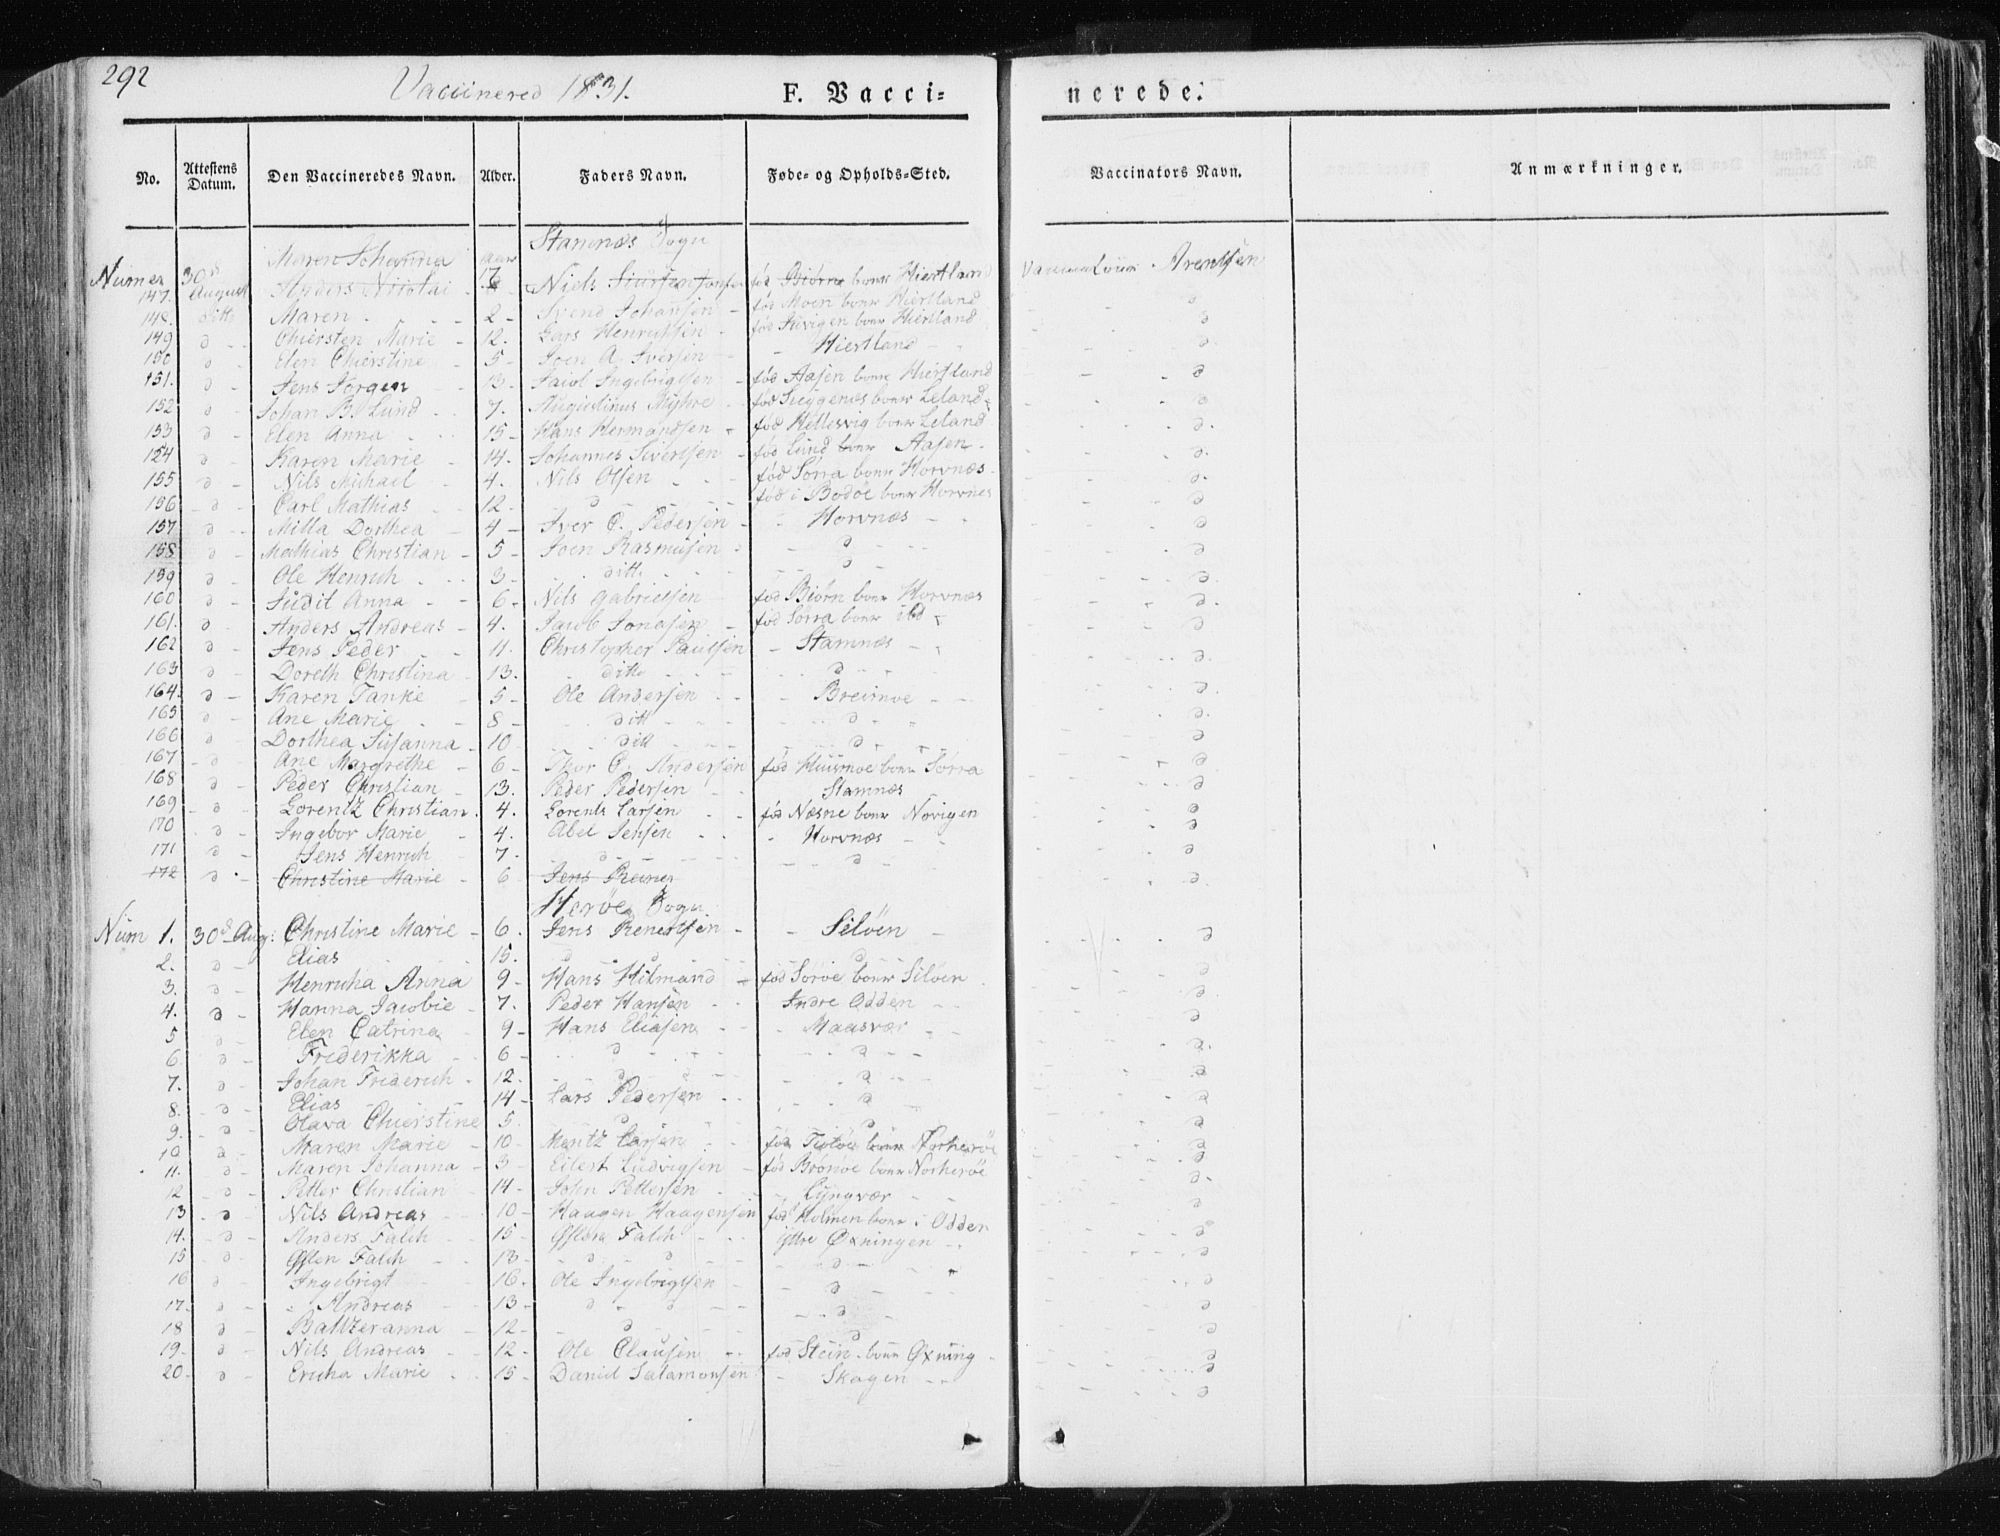 292
Vaccinered 1831.
F. Vacci=
nerede.
No. Attestens Datum. Den Vaccineredes Navn. Alder. Faders Navn. Føde- og Opholds-Sted. Vaccinators Navn. Anmærkninger.
Stamnæs Sogn
Maren Johanna aar
Numer 147. 30 August Anders Nicolai 6 Niels fød Biørn boner Hiertland Arentsen
148. ditto Maren 2 Svend Johansen fød Moen boner Hiertland
149 d Chiersten Marie 12. Lars Henrichsen fød boner Hiertland
150 d Elen Chierstine 5 Joen A. Iversen Hiertland
151. d Jens Jørgen 13. Jacob Ingebrigtsen fød Aasen boner Hiertland
152 d Johan B. Lund 7. Augustinus Myhre fød boner Leland
153 d Elen Anna 15 Hans Hermandsen fød Hellesvig boner Leland
124 d Karen Marie 14. Johannes Sivertsen fød Lund boner Aasen
155 d Nils Michael 4. Nils Olsen fød Sørra boner Horvnæs
156 d Carl Mathias 12 d fød i Bodøe boner Horvnes
157 d Milla Dorthea 4 Iver C. Pedersen Horvnæs
158 d Mathias Christian 5 Joen Rasmusen d
159 d Ole Henrich 3 ditto d
160 d Judit Anna 6 Nils Gabrielsen fød Biørn boner Horvnæs
161. d Anders Andreas 4. Jacob Jonasen fød Sørra boner ibd
162 d Jens Peder 11. Christopher Paulsen Stamnæs
163 d Doreth Christina 13. ditto d
164. d Karen Tanke 5 Ole Andersen Breimoe
165 d Ane Marie 8 ditt d
166 d Dorthea Susanna 10 ditt d
167 d Ane Margrethe 6 Thor C. Andersen fød Huusmoe boner Sørra
168 d Peder Christian 13. Peder Pedersen Stamnæs
169 d Lorentz Christian 4. Lorents Larsen fød Næsne boner Norvigen
170 d Ingebor Marie 4. Abel Jensen Horvnæs
171 d Jens Henrich 7. d d
172 d Christine Marie 6 Jens
Herøe Sogn
Num 1. 30 Aug: Christine Marie 6. Jens Renertsen Seløen
2. d Elias 15. d d
3. d Henricha Anna 9 Hans Hilmand fød Sørøe boner Siløen
4. d Hanna Jacobie 7. Peder Hansen Indre Odden
5 d Elen Catrina 9 Hans Eliasen Maasvær
6. d Friderikka 6 d d
7. d Johan Friderich 12. d d
8. d Elias 14 Lars Pedersen d
9. d Olava Chierstine 5. d d
10 d Maren Marie 10 Mentz Larsen fød Tiøtøe boner Norherøe
11. d Maren Johanna 3 Eilert Ludvigsen fød Brønøe boner Norherøe
12 d Petter Christian 14 John Pettersen Lyngvær
13 d Nils Andreas 10 Haagen Haagensen fød Holmen boner i Odden
14. d Anders Falch 15 Falch ijttre Øxningen
15 d Falch 13 d d
16 d Ingebrigt 16. Ole Ingebrigtsen d
17. d Andreas 13 d d d
18 d Baltzeranna 12 d d
19. d Nils Andreas 12 Ole Clausen fød Stein boner Øxning
20. d Ericha Marie 15 Daniel Salamonsen Skagen